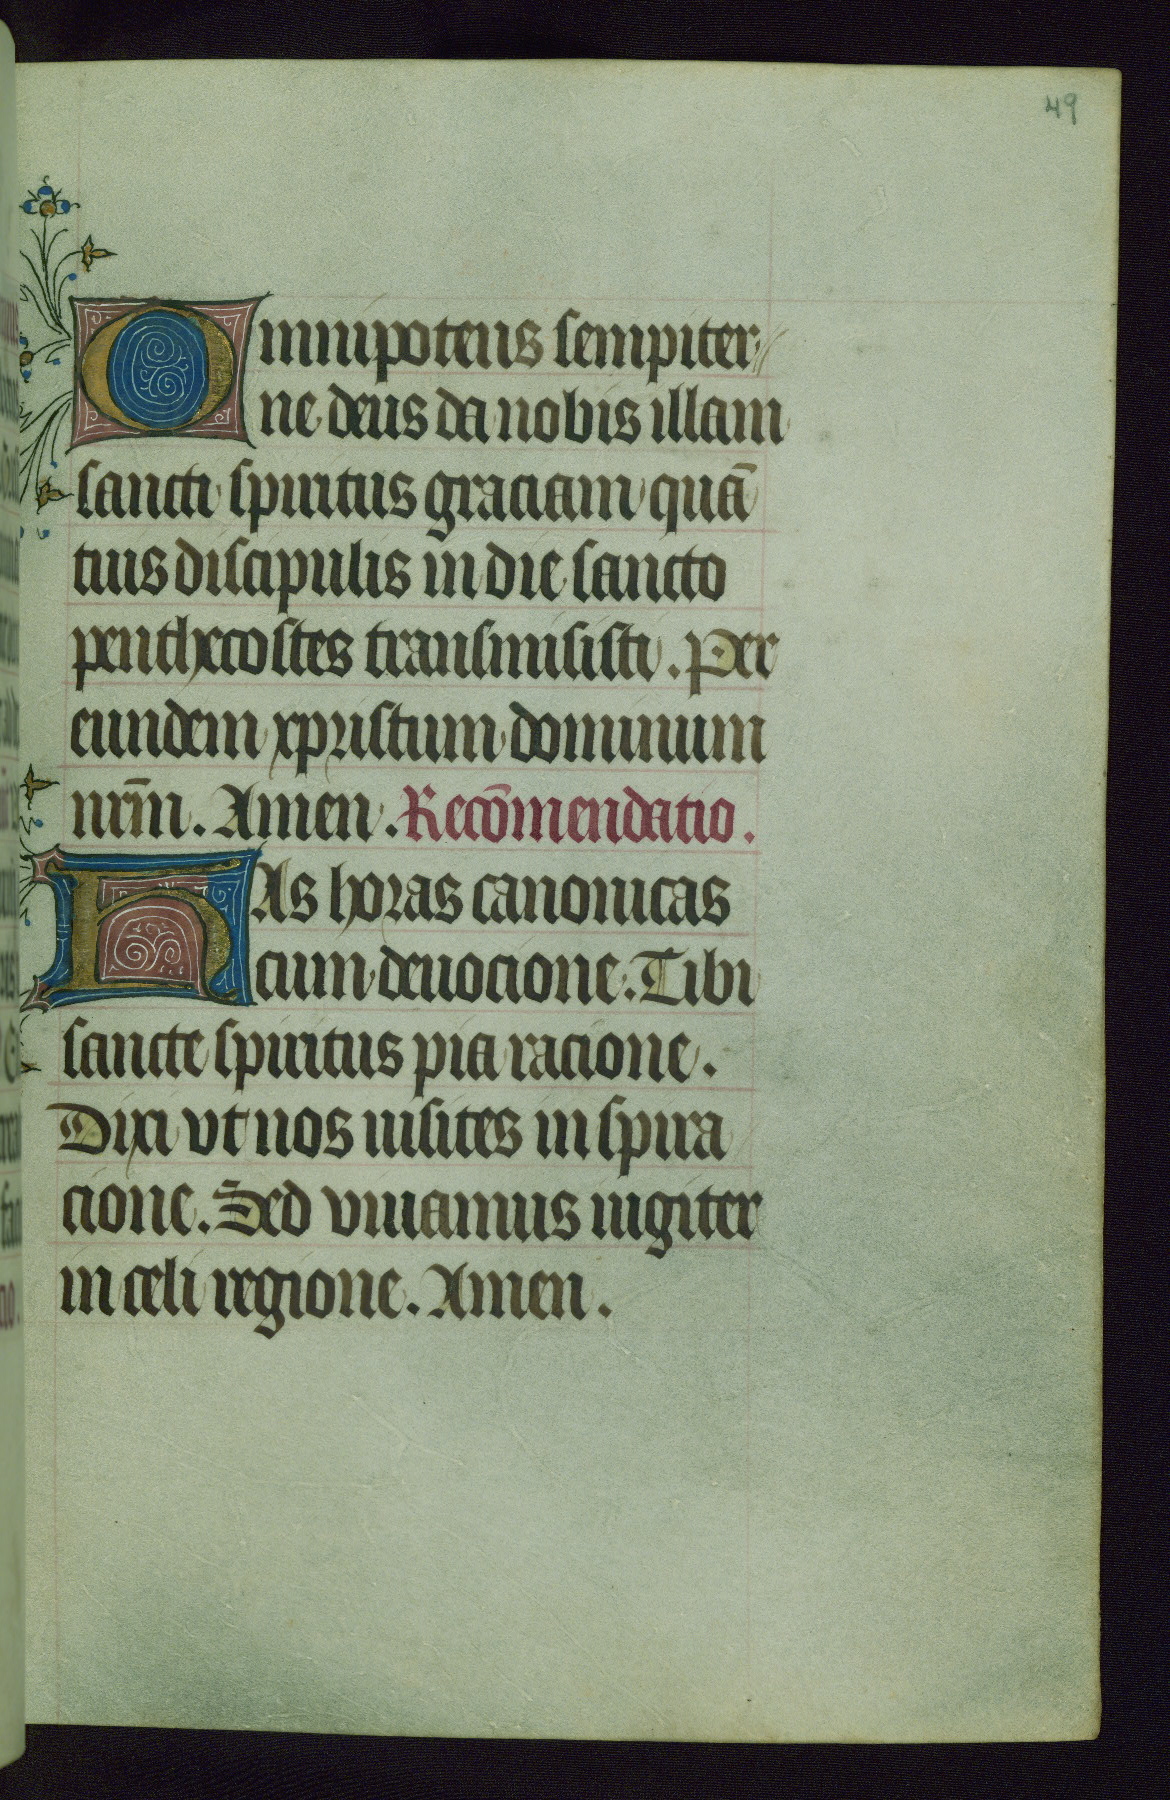 49
Omnipotens sempiter
ne deus da nobis illam
sancti spiritus graciam quā
tuis discipulis in die sancto
penthecostes transmisisti. Per
eundem xpristum dominum
nr̄m. Amen. Recōmendatio.
HAs horas canonicas
cum deuocione. Tibi
sancte spiritus pia racione.
Dixi vt nos uisites inspira
cione. Sed viuamus iugiter
in celi regione. Amen.